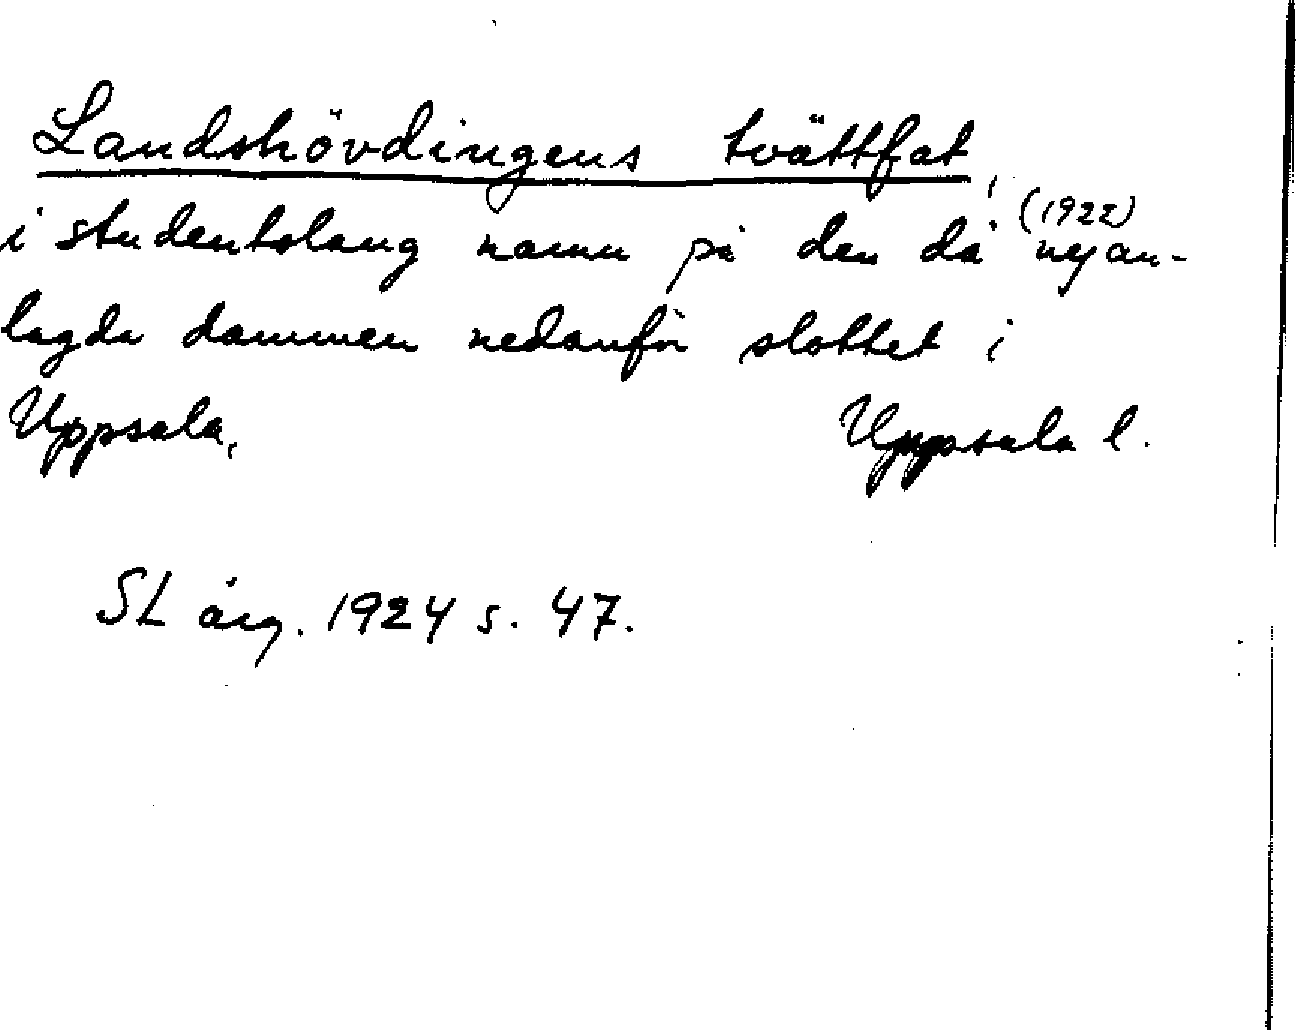 Landshövdingens tvättfat
i studentslang namn på den då (1922) nyan-
lagda dammen nedanför slottet i
Uppsala. Uppsala l.
SL årg. 1924 s. 47.